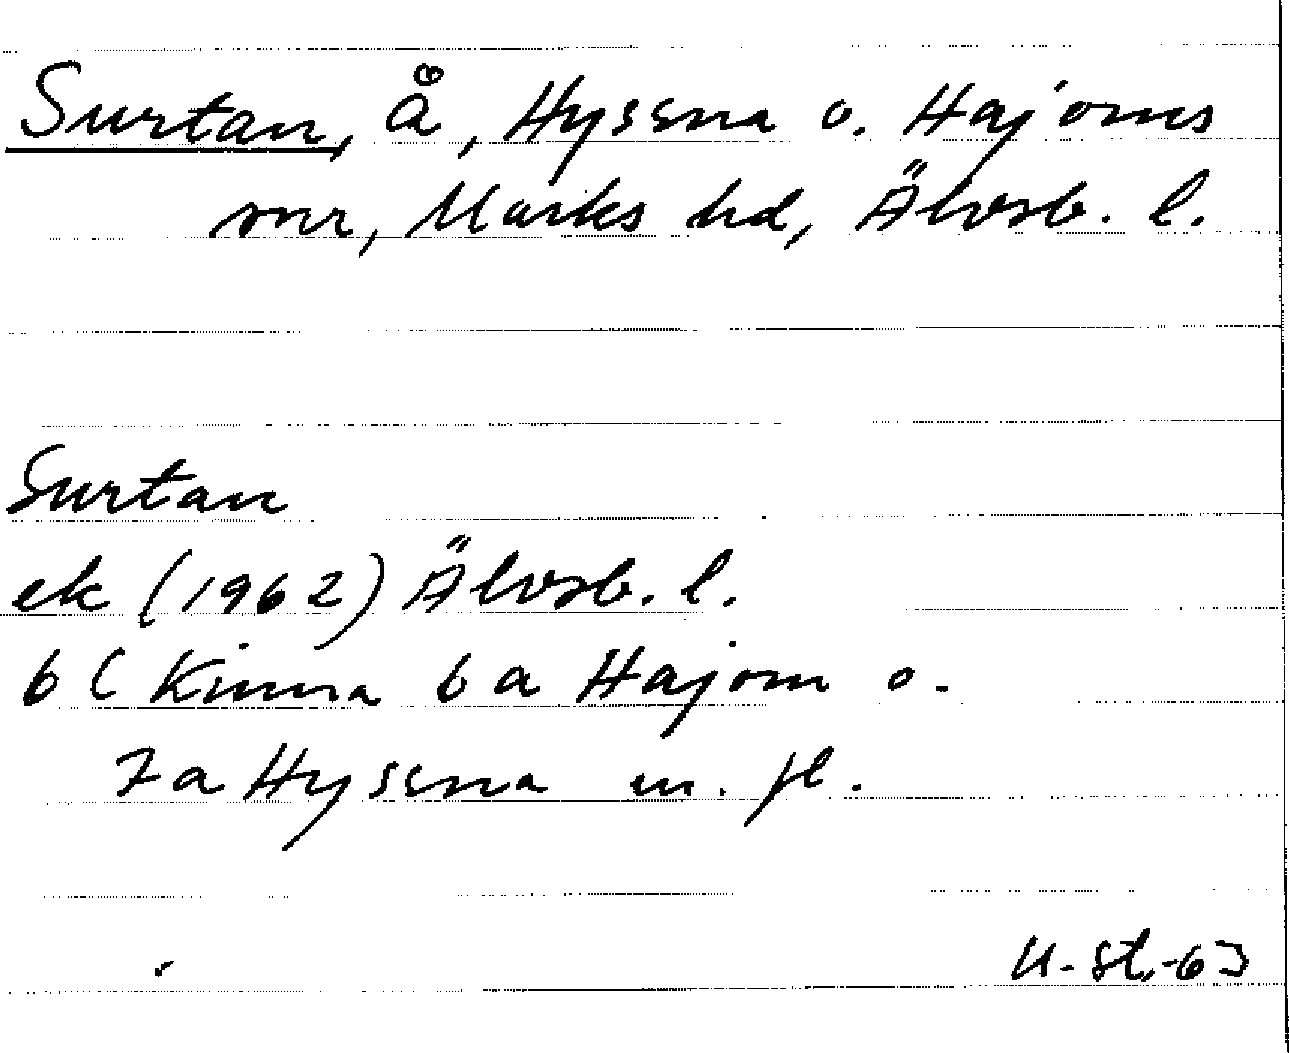 Surtan, å, Hyssna o. Hajoms
snr, Marks hd, Älvsb. l.
Surtan
ek (1962) Älvsb. l.
6 C Kinna 6 a Hajom o.
7 a Hyssna m. fl.
U. St. -63